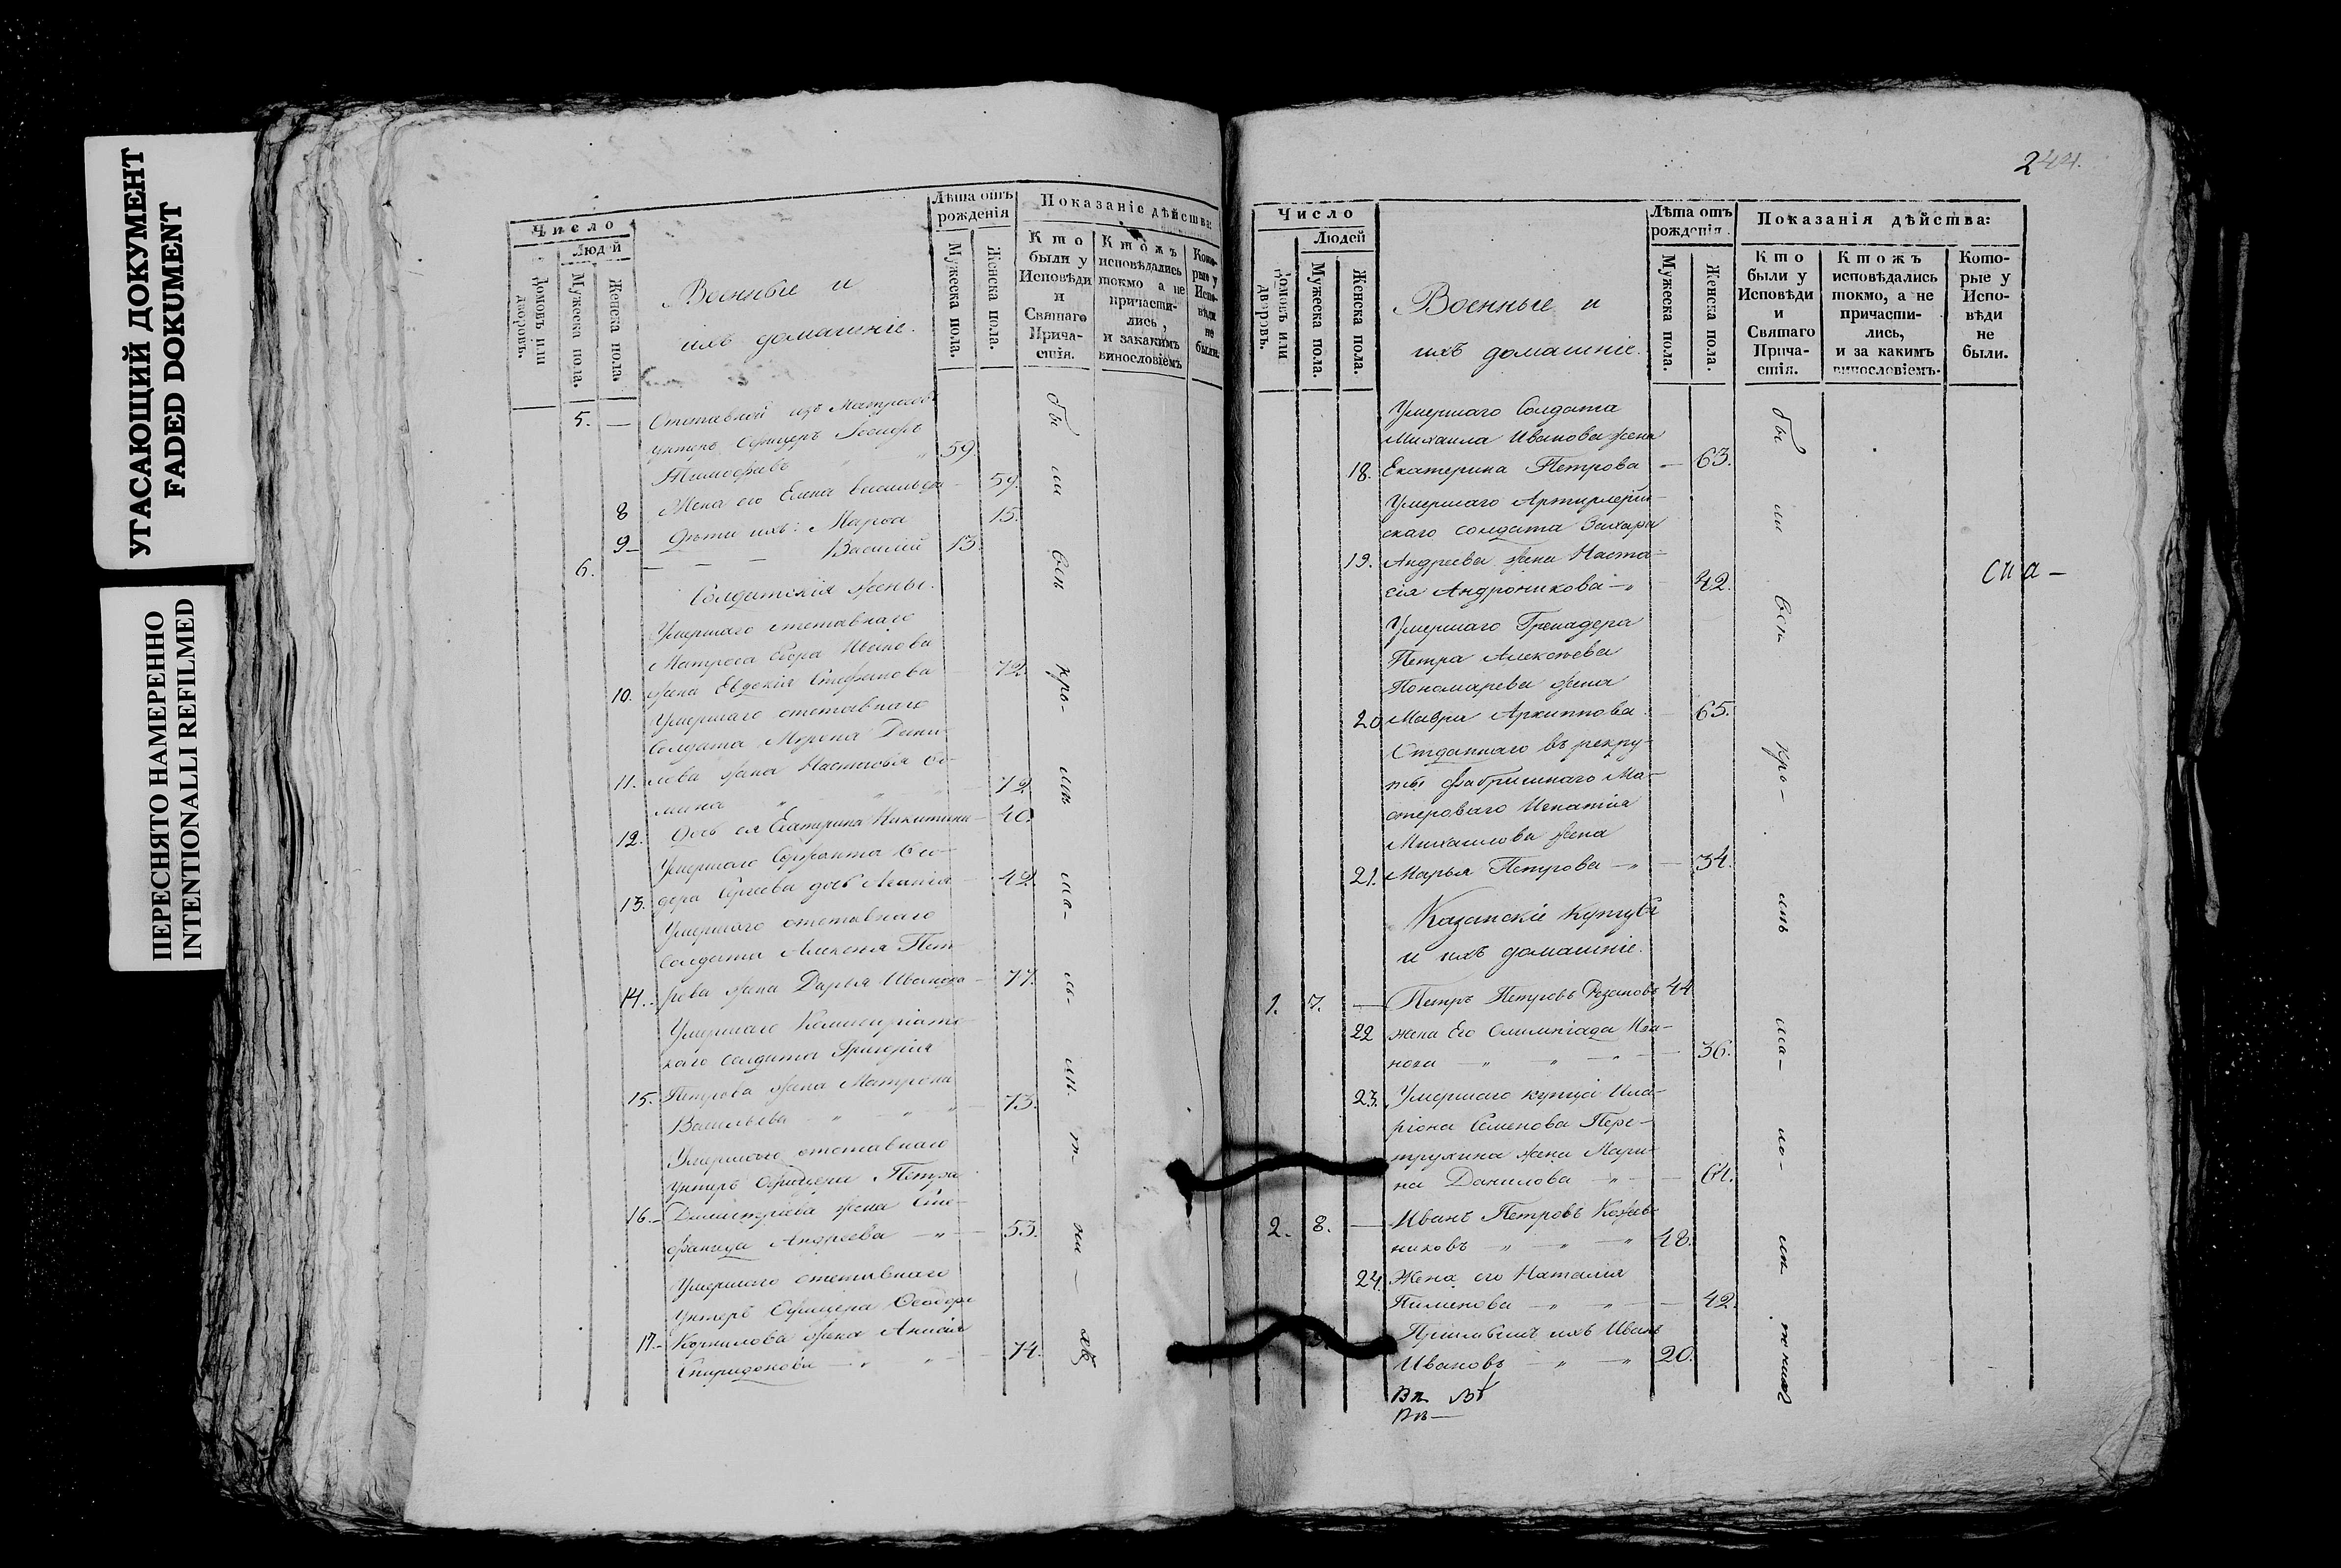 УГАСАЮЩИЙ ДОКУМЕНТ
FADED DOKUMENT
ПЕРЕСНЯТО НАМЕРЕННО
INTENTIONALLI REFILMED
Число
Людей
Домовъ или дворовъ.
Мужеска пола.
Женска пола.
Военные и
ихъ домашніе.
Лѣта отъ рожденія
Мужеска пола.
Женска пола.
Показаніе дѣйства:
Кто были у Исповѣди и Святаго Прича-стія.
Ктожъ исповѣдались токмо а не причасти-лись, и закакимъ винословіемъ
Кото-рые у Испо-вѣди не были.
5. — Отставной изъ Матросовъ
унтеръ Офицеръ
Тимофѣевъ 59
8 Жена его Елена Васильева 59.
9 Дѣти ихъ: Марѳа 15.
6. Василий 13.
Солдатскія жены.
Умершаго отставнаго
Матроса Егора Иванова
10. жена Евдокія Стефанова 72.
Умершаго отставнаго
Солдата Мирона Дани-
11. лова жена Настасья Ѳо-
мина 72
12. Дочь ея Екатерина Никитина 40.
Умершаго Сержанта Ѳео-
13. дора Сергеева дочь Агапія 42.
Умершаго отставнаго
солдата Алексея Пет
14. рова жена Дарья Иванова 77.
Умершаго Коммисаріатс-
каго солдата Григорія
15. Петрова жена Матрона
Васильева 73.
Умершаго отставнаго
унтеръ Офицера Петра
16. Димитріева жена Сте-
фанида Андреева 53.
Умершаго отставнаго
Унтеръ Офицера Ѳеодора
17. Корнилова жена Анисія
Спиридонова 74.
бы ли всѣ кро- мѣ ма- лѣ- т- ни — хъ
244.
Число
Людей
Домовъ или дворовъ.
Мужеска пола.
Женска пола.
Военные и
ихъ домашніе.
Лѣта отъ рожденія.
Мужеска пола.
Женска пола.
Показанія дѣйства:
Кто были у Исповѣди и Святаго Прича-стія.
Ктожъ исповѣдались токмо, а не причасти-лись, и за какимъ винословіемъ.
Кото-рые у Испо-вѣди не были.
Умершаго Солдата
Михаила Иванова жена
18. Екатерина Петрова — 63.
Умершаго Артиллерій-
скаго солдата Захара
19. Андреева жена Наста-
сія Андроникова 42.
Умершаго Гренадера
Петра Алексѣева
Пономарева жена
20 Мавра Архиппова 65.
Отданнаго въ рекру-
ты фабришнаго Ма-
стероваго Игнатія
Михаилова жена
21. Марья Петрова — 34.
Казанскіе Купцы
и ихъ домашніе.
1. 7. — Петръ Петровъ Рязановъ 44
22 жена Его Олимпіада Ива-
нова 36.
23. Умершаго купца Ила-
ріона Семенова Пере-
трухина жена Мари-
на Данилова 64.
2. 8. — Иванъ Петровъ Кожев-
никовъ 48.
24. Жена его Наталія
Пименова 42.
Пріимышъ ихъ Иванъ
Ивановъ 20.
бы ли всѣ кро- мѣ ма- лѣ тнихъ